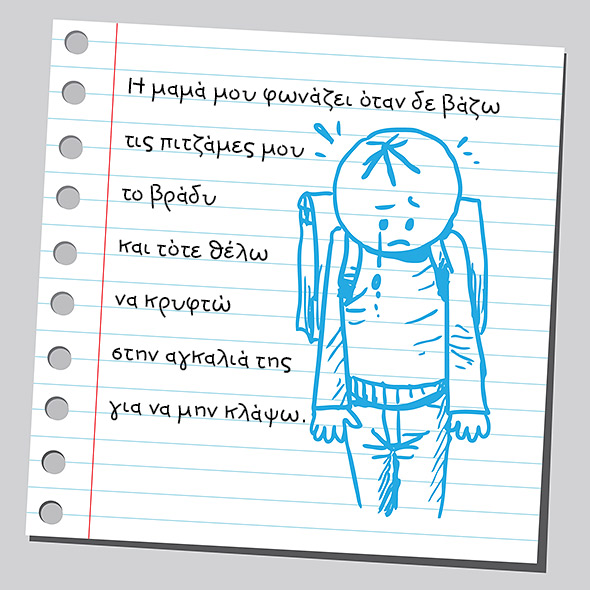 Η μαμά μου φωνάζει όταν δε βάζω
τις πιτζάμες μου
το βράδυ
και τότε θέλω
να κρυφτώ
στην αγκαλιά της
για να μην κλάψω.